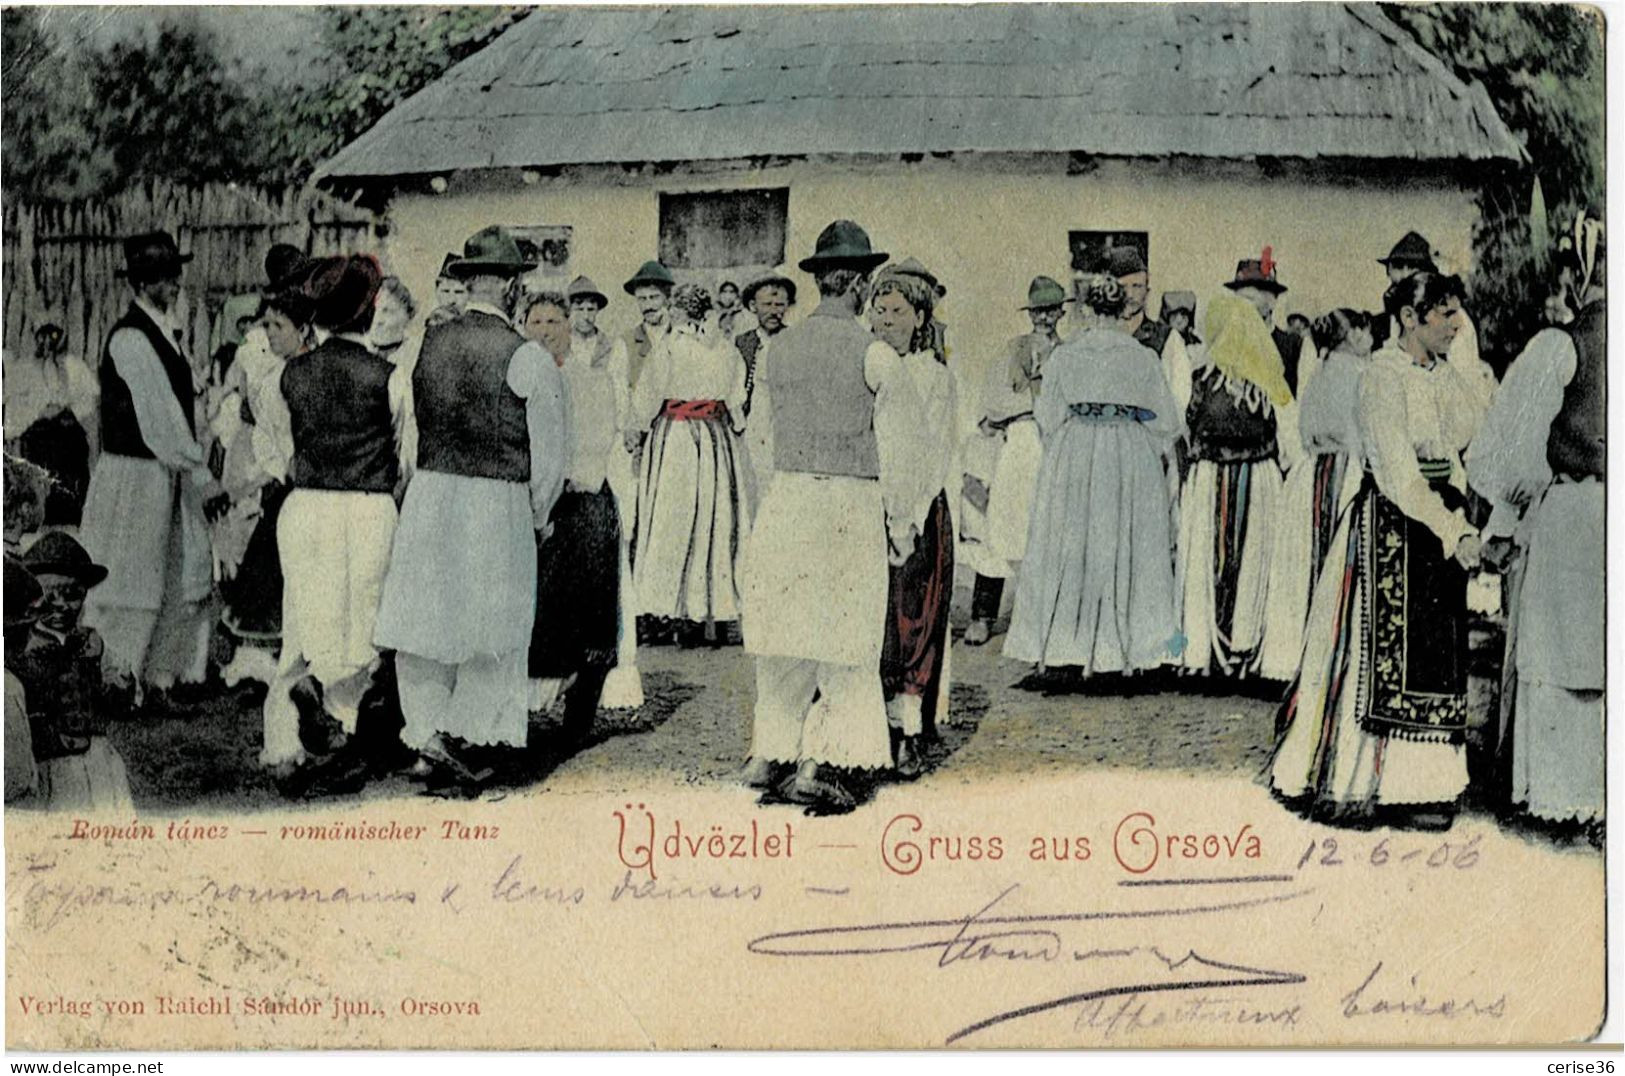 Román táncz — romänischer Tanz
Üdvözlet — Gruss aus Orsova 12-6-06
roumains & leurs danses —
Affectueux baisers
Verlag von Raichl Sándor jun., Orsova
cerise36